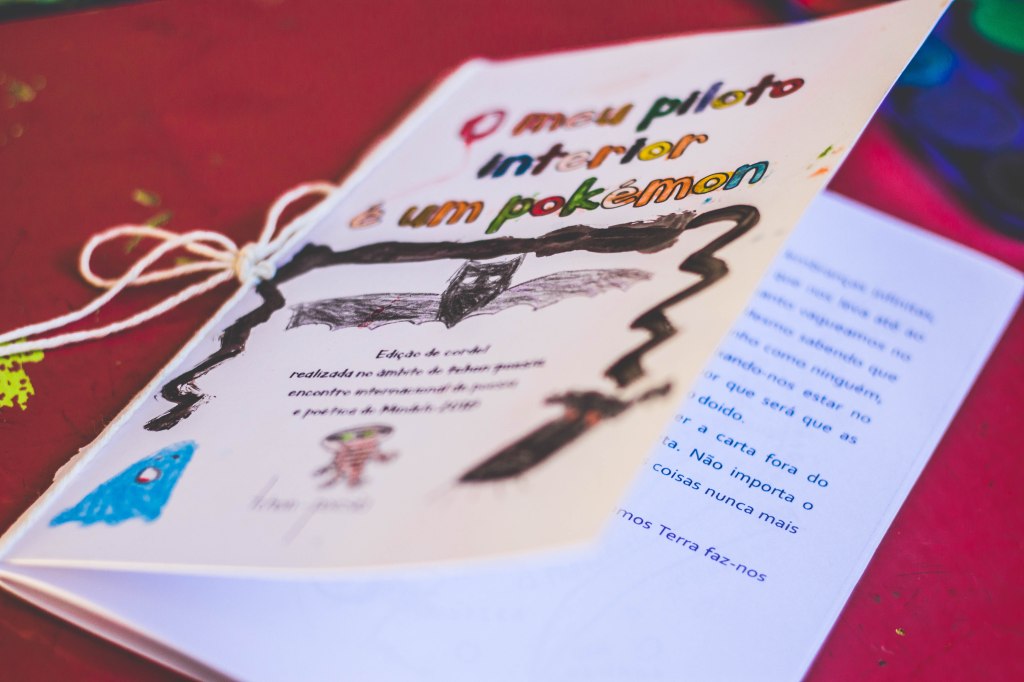 O meu piloto
interior
é um pokémon
Edição de cordel
realizada no âmbito do
encontro internacional de poesia
e poética do
que nos leva até ao
vagueamos no
mesmo sabendo que
como ninguém,
-nos estar no
que será que as
doido.
a carta fora do
Não importa o
coisas nunca mais
Terra faz-nos